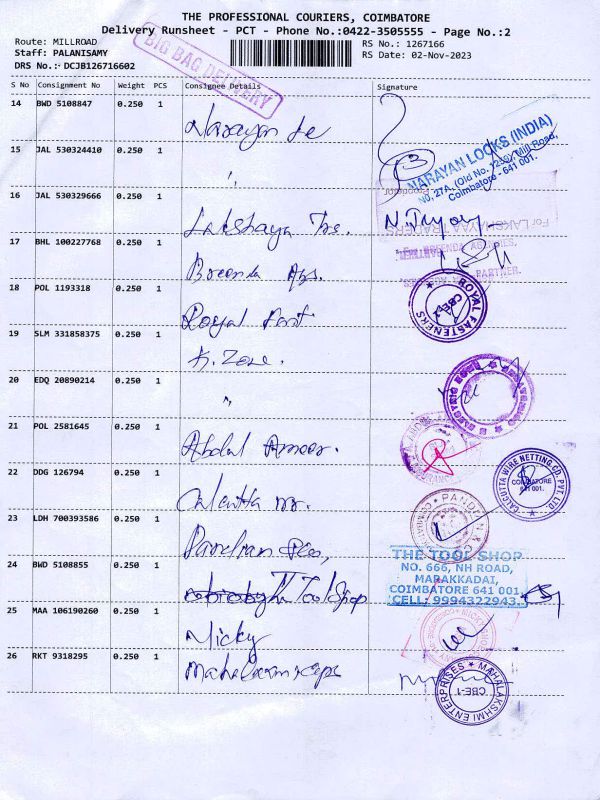 THE PROFESSIONAL COURIERS, COIMBATORE
Delivery Runsheet - PCT - Phone No.:0422-3505555 - Page No.:2
Route: MILLROAD
RS No.: 1267166
Staff: PALANISAMY
RS Date: 02-Nov-2023
DRS No.:- DCJB126716602
BIG BAG DELIVERY
S No Consignment No Weight PCS Consignee Details Signature
14 BWD 5108847 0.250 1
Narayan
15 JAL 530324410 0.250 1
NARAYAN LOCKS (INDIA)
Mill Road,
Coimbatore - 641 001.
16 JAL 530329666 0.250 1
Lakshaya
For LAKSHMYAA TRADERS
17 BHL 100227768 0.250 1
PARTNER.
18 POL 1193318 0.250 1
Royal
ROYAL FASTENERS
CBE-1
19 SLM 331858375 0.250 1
K. Zone.
20 EDQ 20890214 0.250 1
"
21 POL 2581645 0.250 1
Abdul Ameer.
22 DDG 126794 0.250 1
KALCUTTA WIRE NETTING CO. PVT. LTD
COIMBATORE
641 001.
23 LDH 700393586 0.250 1
24 BWD 5108855 0.250 1
The Tool Shop
THE TOOL SHOP
NO. 666, NH ROAD,
MARAKKADAI,
COIMBATORE 641 001.
CELL: 9994322943.
25 MAA 106190260 0.250 1
Micky
26 RKT 9318295 0.250 1
MAHALAKSHMI ENTERPRISES
CBE-1